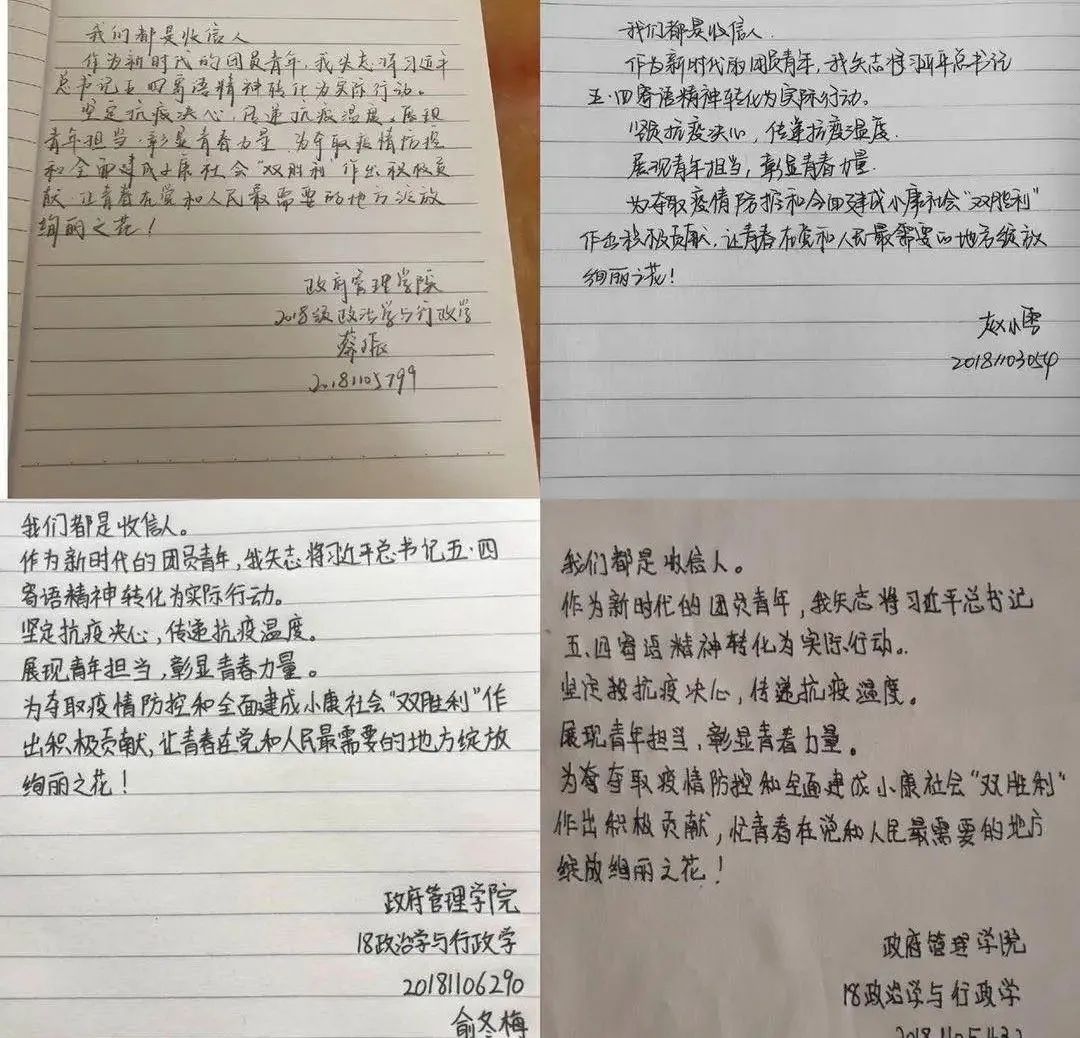 我们都是收信人
作为新时代的团员青年，我矢志将习近平
总书记五四寄语精神转化为实际行动。
坚定抗疫决心，传递抗疫温度。展现
青年担当，彰显青春力量，为夺取疫情防控
和全面建成小康社会“双胜利”作出积极贡
献，让青春在党和人民最需要的地方绽放
绚丽之花！
政府管理学院
2018级政治学与行政学
蔡振
20181105799
我们都是收信人.
作为新时代的团员青年，我矢志将习近平总书记
五·四寄语精神转化为实际行动。
坚定抗疫决心，传递抗疫温度.
展现青年担当，彰显青春力量.
为夺取疫情防控和全面建成小康社会“双胜利”
作出积极贡献，让青春在党和人民最需要的地方绽放
绚丽之花！
赵小雪
20181103054
我们都是收信人。
作为新时代的团员青年，我矢志将习近平总书记五·四
寄语精神转化为实际行动。
坚定抗疫决心，传递抗疫温度。
展现青年担当，彰显青春力量。
为夺取疫情防控和全面建成小康社会“双胜利”作
出积极贡献，让青春在党和人民最需要的地方绽放
绚丽之花！
政府管理学院
18政治学与行政学
20181106290
俞冬梅
我们都是收信人。
作为新时代的团员青年，我矢志将习近平总书记
五.四寄语精神转化为实际行动。
坚定抗疫决心，传递抗疫温度。
展现青年担当，彰显青春力量。
为夺取疫情防控和全面建成小康社会“双胜利”
作出积极贡献，让青春在党和人民最需要的地方
绽放绚丽之花！
政府管理学院
18政治学与行政学